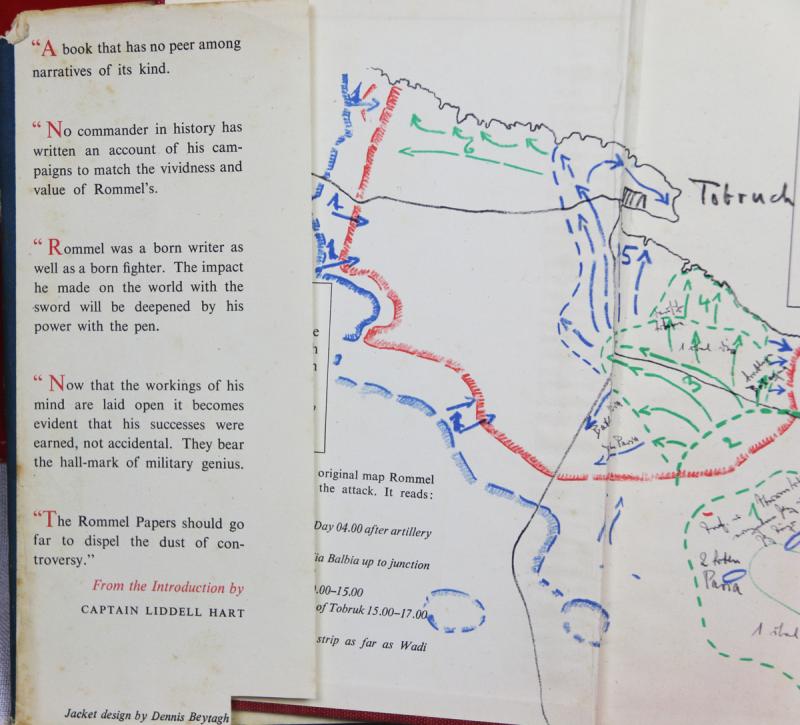 “A book that has no peer among
narratives of its kind.
“No commander in history has
written an account of his cam-
paigns to match the vividness and
value of Rommel's.
“Rommel was a born writer as
well as a born fighter. The impact
he made on the world with the
sword will be deepened by his
power with the pen.
“Now that the workings of his
mind are laid open it becomes
evident that his successes were
earned, not accidental. They bear
the hall-mark of military genius.
“The Rommel Papers should go
far to dispel the dust of con-
troversy.”
From the Introduction by
CAPTAIN LIDDELL HART
Jacket design by Dennis Beytagh
original map Rommel
the attack. It reads:
Day 04.00 after artillery
Balbia up to junction
.00-15.00
of Tobruk 15.00-17.00
strip as far as Wadi
Tobruch
6
1
1
1
2
5
4
3
2
1